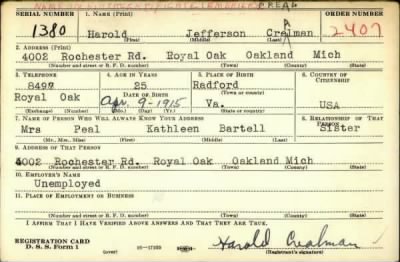 CREA
SERIAL NUMBER 1. NAME (Print) ORDER NUMBER
1380 Harold Jefferson Cralman 2407
(First) (Middle) (Last)
2. ADDRESS (Print)
4002 Rochester Rd. Royal Oak Oakland Mich
(Number and street or R. F. D. number) (Town) (County) (State)
3. TELEPHONE 4. AGE IN YEARS 5. PLACE OF BIRTH 6. COUNTRY OF CITIZENSHIP
8497 25 Radford
DATE OF BIRTH (Town or county)
Royal Oak Apr. 9-1915 Va. USA
(Exchange) (Number) (Mo.) (Day) (Yr.) (State or country)
7. NAME OF PERSON WHO WILL ALWAYS KNOW YOUR ADDRESS 8. RELATIONSHIP OF THAT PERSON
Mrs Peal Kathleen Bartell Sister
(Mr., Mrs., Miss) (First) (Middle) (Last)
9. ADDRESS OF THAT PERSON
4002 Rochester Rd. Royal Oak Oakland Mich
(Number and street or R. F. D. number) (Town) (County) (State)
10. EMPLOYER'S NAME
Unemployed
11. PLACE OF EMPLOYMENT OR BUSINESS
(Number and street or R. F. D. number) (Town) (County) (State)
I AFFIRM THAT I HAVE VERIFIED ABOVE ANSWERS AND THAT THEY ARE TRUE.
REGISTRATION CARD
D. S. S. Form 1 Harold Crealman
(Registrant's signature)